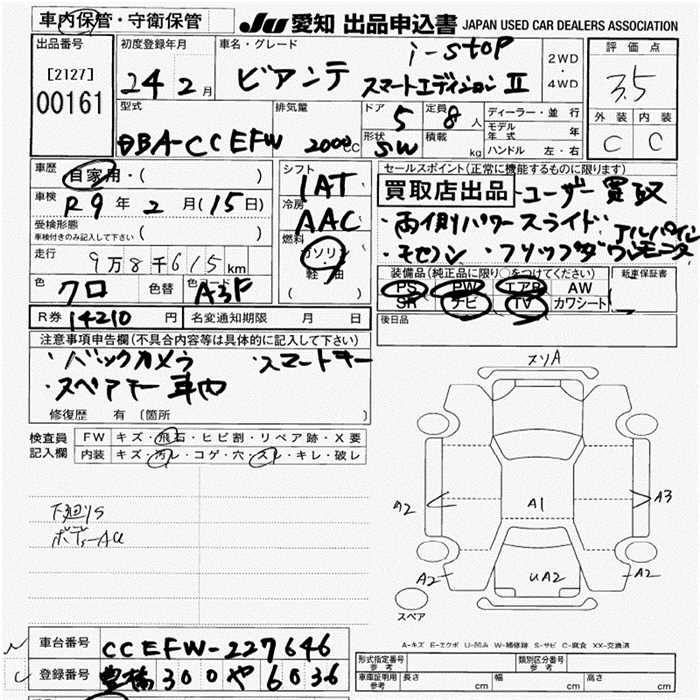 車内保管・守衛保管
JU 愛知 出品申込書 JAPAN USED CAR DEALERS ASSOCIATION
出品番号
[2127]
00161
初度登録年月
24 2月
車名・グレード
i-stop
ビアンテ スマートエディション II
2WD
・
4WD
評価点
3.5
外装 内装
C C
型式
DBA-CCEFW
排気量
2000cc
ドア 5
形状 SW
定員 8 人
積載 kg
ディーラー・並行
モデル年式 年
ハンドル 左・右
車歴
自家用・( )
車検
R9年2月(15日)
受検形態
車検付きのみ記入して下さい ( )
走行
9万8千615km
色
クロ
色替
A3F
シフト
1AT
冷房
AAC
燃料
ガソリン
軽油
( )
セールスポイント(正常に機能するものに限ります)
買取店出品 ユーザー買取
・両側パワースライド アルパイン
・モセン ・フリップダウンモニター
装備品(純正品に限り○をつけてください)
PS PW エアB AW
SR ナビ TV カワシート
新車保証書
後日品
R券 14210円
名変通知期限 月 日
注意事項申告欄(不具合内容等は具体的に記入して下さい)
・バックカメラ ・スマートキー
・スペアキー車内
修復歴 有 〔箇所 〕
検査員
記入欄
FW キズ・飛石・ヒビ割・リペア跡・X要
内装 キズ・汚レ・コゲ・穴・スレ・キレ・破レ
下廻りS
ボデーAU
スリA
A2
A1
A3
A2
UA2
A2
スペア
A-キズ E-エクボ U-凹み W-補修跡 S-サビ C-腐食 XX-交換済
車台番号 CCEFW-227646
登録番号 豊橋300や6036
形式指定番号
参考
類別区分番号
参考
車庫証明用
参考
長さ cm
幅 cm
高さ cm